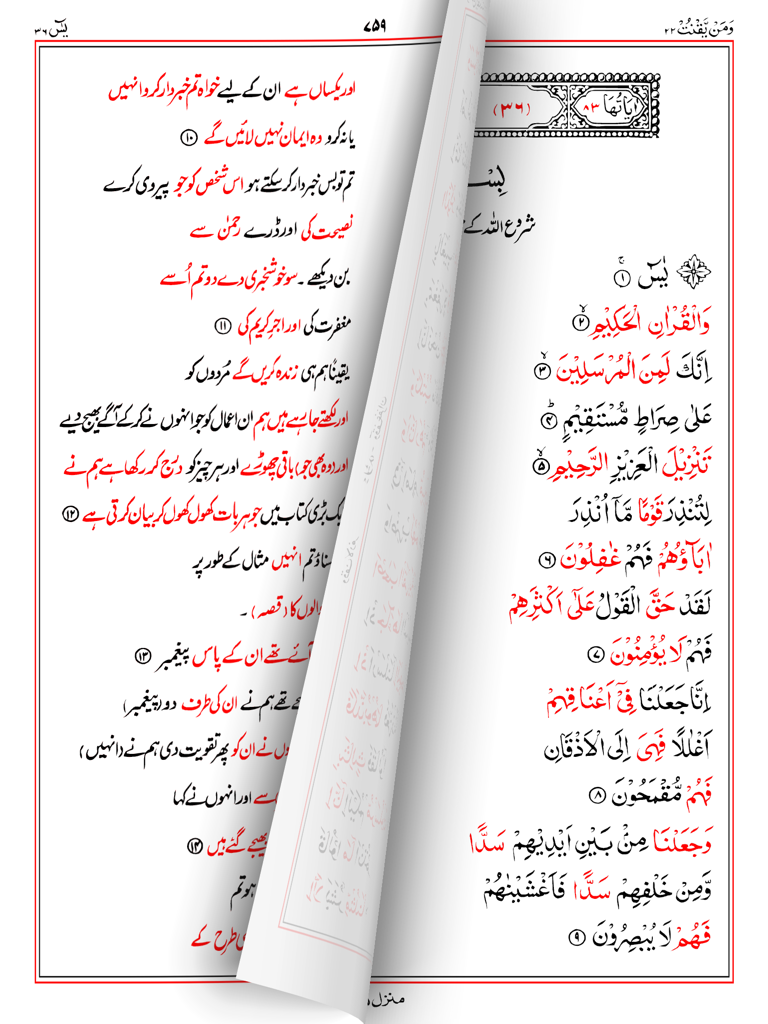 وَمَنْ يَّقْنُتْ ٢٢
٧٥٩
يٰسٓ ٣٦
اٰيَاتُهَا ٨٣
(٣٦)
بِسْ
شروع اللہ کے
يٰسٓ ۚ ۝١
وَالْقُرْاٰنِ الْحَكِيْمِ ۙ ۝٢
اِنَّكَ لَمِنَ الْمُرْسَلِيْنَ ۙ ۝٣
عَلٰى صِرَاطٍ مُّسْتَقِيْمٍ ۝٤
تَنْزِيْلَ الْعَزِيْزِ الرَّحِيْمِ ۙ ۝٥
لِتُنْذِرَ قَوْمًا مَّاۤ اُنْذِرَ
اٰبَآؤُهُمْ فَهُمْ غٰفِلُوْنَ ۝٦
لَقَدْ حَقَّ الْقَوْلُ عَلٰٓى اَكْثَرِهِمْ
فَهُمْ لَا يُؤْمِنُوْنَ ۝٧
اِنَّا جَعَلْنَا فِيْۤ اَعْنَاقِهِمْ
اَغْلٰلًا فَهِيَ اِلَى الْاَذْقَانِ
فَهُمْ مُّقْمَحُوْنَ ۝٨
وَجَعَلْنَا مِنْۢ بَيْنِ اَيْدِيْهِمْ سَدًّا
وَّمِنْ خَلْفِهِمْ سَدًّا فَاَغْشَيْنٰهُمْ
فَهُمْ لَا يُبْصِرُوْنَ ۝٩
اور یکساں ہے ان کے لیے خواہ تم خبردار کرو انہیں
یا نہ کرو وہ ایمان نہیں لائیں گے ۝١٠
تم تو بس خبردار کر سکتے ہو اس شخص کو جو پیروی کرے
نصیحت کی اور ڈرے رحمٰن سے
بن دیکھے ۔ سو خوشخبری دے دو تم اُسے
مغفرت کی اور اجرِ کریم کی ۝١١
یقیناً ہم ہی زندہ کریں گے مُردوں کو
اور لکھتے جا رہے ہیں ہم ان اعمال کو جو انہوں نے کر کے آگے بھیج دیے
اور (وہ بھی جو) باقی چھوڑے اور ہر چیز کو درج کر رکھا ہے ہم نے
ایک بڑی کتاب میں جو ہر بات کھول کھول کر بیان کرتی ہے ۝١٢
سناؤ تم انہیں مثال کے طور پر
والوں کا (قصہ) ۔
آئے تھے ان کے پاس پیغمبر ۝١٣
تھے ہم نے ان کی طرف دو (پیغمبر)
نے ان کو پھر تقویت دی ہم نے (انہیں)
سے اور انہوں نے کہا
بھیجے گئے ہیں ۝١٤
ہو تم
طرح کے
منزل